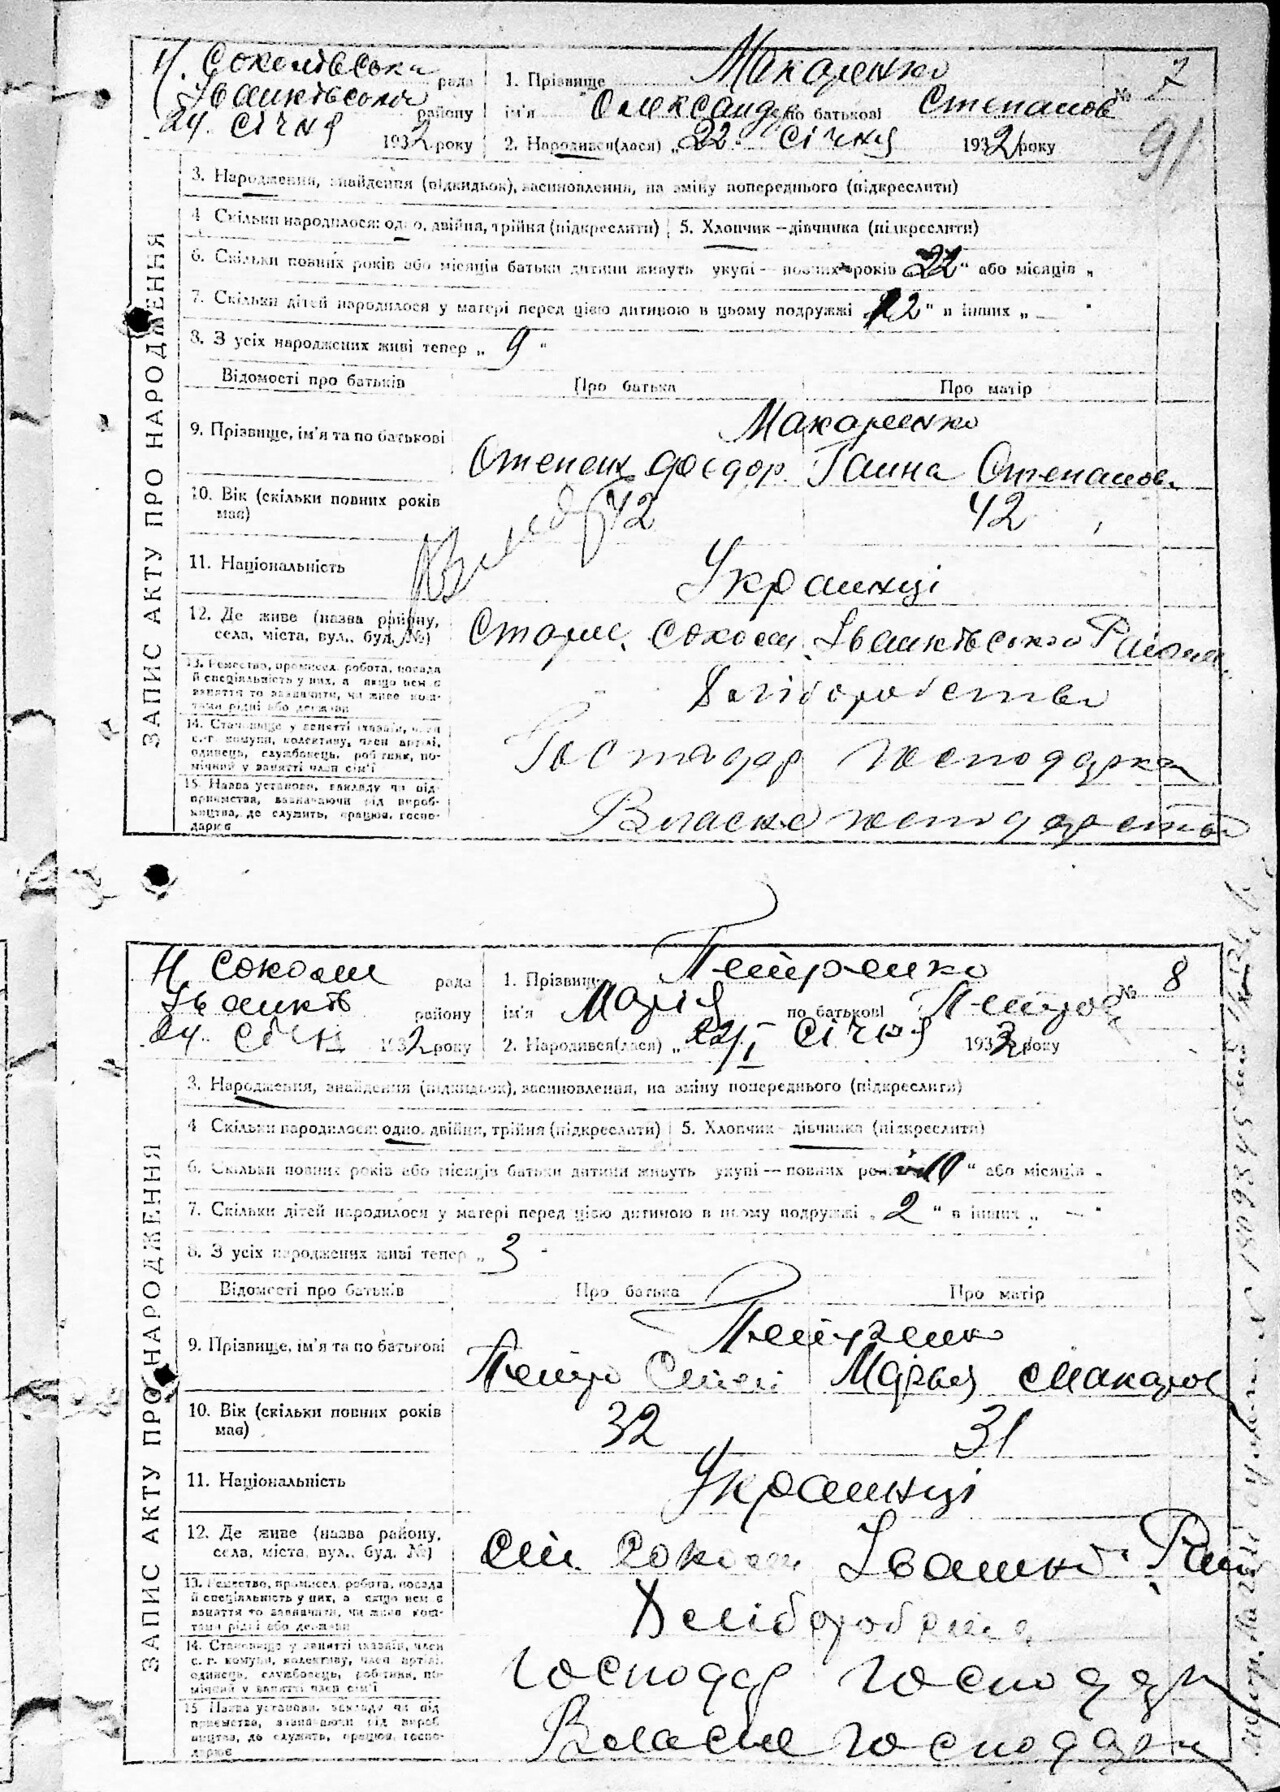 Н. Соколівська рада
Іванківського району
24 січня 1932 року
1. Прізвище Макаренко
ім'я Олександр по батькові Степанов
№ 7
91
2. Народився(лася) „22" січня 1932 року
ЗАПИС АКТУ ПРО НАРОДЖЕННЯ
3. Народження, знайдення (підкидьок), засиновлення, на зміну попереднього (підкреслити)
4 Скільки народилося: одно, двійня, трійня (підкреслити) 5. Хлопчик — дівчинка (підкреслити)
6. Скільки повних років або місяців батьки дитини живуть укупі — повних років 22 " або місяців „
7. Скільки дітей народилося у матері перед цією дитиною в цьому подружжі 12 " в інших „ —
8. З усіх народжених живі тепер „ 9 "
Відомості про батьків Про батька Про матір
9. Прізвище, ім'я та по батькові Макаренко
Степан Федор. Ганна Степанов.
10. Вік (скільки повних років має) 42 42
11. Національність Украинці
12. Де живе (назва району, села, міста, вул., буд. №) Іванківського Район
13. Ремество, промисел, робота, посада й спеціяльність у них, а якщо нем є заняття то зазначити, чи живе коштами рідні або держави Хліборобство
14. Становище у занятті (хазяїн, член с.-г. комуни, колективу, член артілі, одинець, службовець, робітник, помічний у занятті член сім'ї Господар господарки
15. Назва установи, закладу чи підприємства, зазначаючи рід виробництва, де служить, працює, господарює Власне господарство
Н. Соколи рада
Іванків району
24 січня 1932 року
1. Прізвище Петренко
ім'я Марія по батькові Петров
№ 8
2. Народився(лася) „ січня 1932 року
ЗАПИС АКТУ ПРО НАРОДЖЕННЯ
3. Народження, знайдення (підкидьок), засиновлення, на зміну попереднього (підкреслити)
4 Скільки народилося: одно, двійня, трійня (підкреслити) 5. Хлопчик — дівчинка (підкреслити)
6. Скільки повних років або місяців батьки дитини живуть укупі — повних років 10 " або місяців „
7. Скільки дітей народилося у матері перед цією дитиною в цьому подружжі „ 2 " в інших „ — "
8. З усіх народжених живі тепер „ 3 "
Відомості про батьків Про батька Про матір
9. Прізвище, ім'я та по батькові Петренко
Петро Марья Макаров
10. Вік (скільки повних років має) 32 31
11. Національність Украинці
12. Де живе (назва району, села, міста, вул., буд. №) Іванків
13. Ремество, промисел, робота, посада й спеціяльність у них, а якщо нем є заняття то зазначити, чи живе коштами рідні або держави
14. Становище у занятті (хазяїн, член с.-г. комуни, колективу, член артілі, одинець, службовець, робітник, помічний у занятті член сім'ї Господар господарки
15. Назва установи, закладу чи підприємства, зазначаючи рід виробництва, де служить, працює, господарює Власне господарки